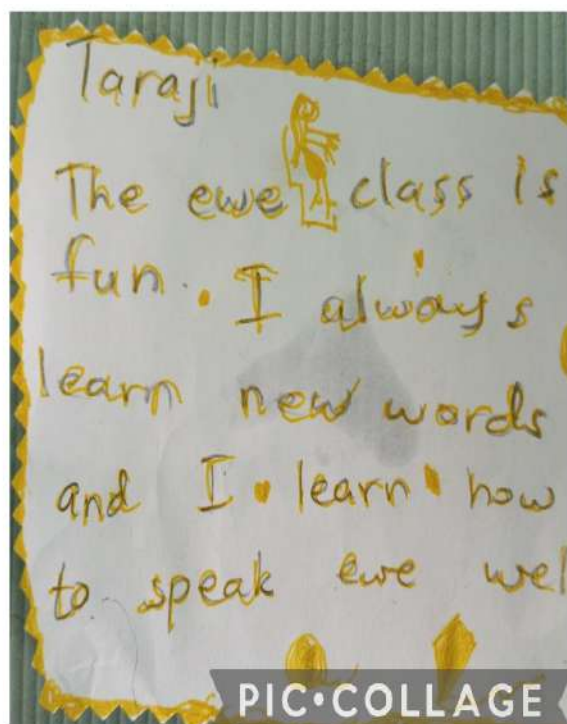 Taraji
The ewe class is
fun. I always
learn new words
and I learn how
to speak ewe wel
PIC•COLLAGE